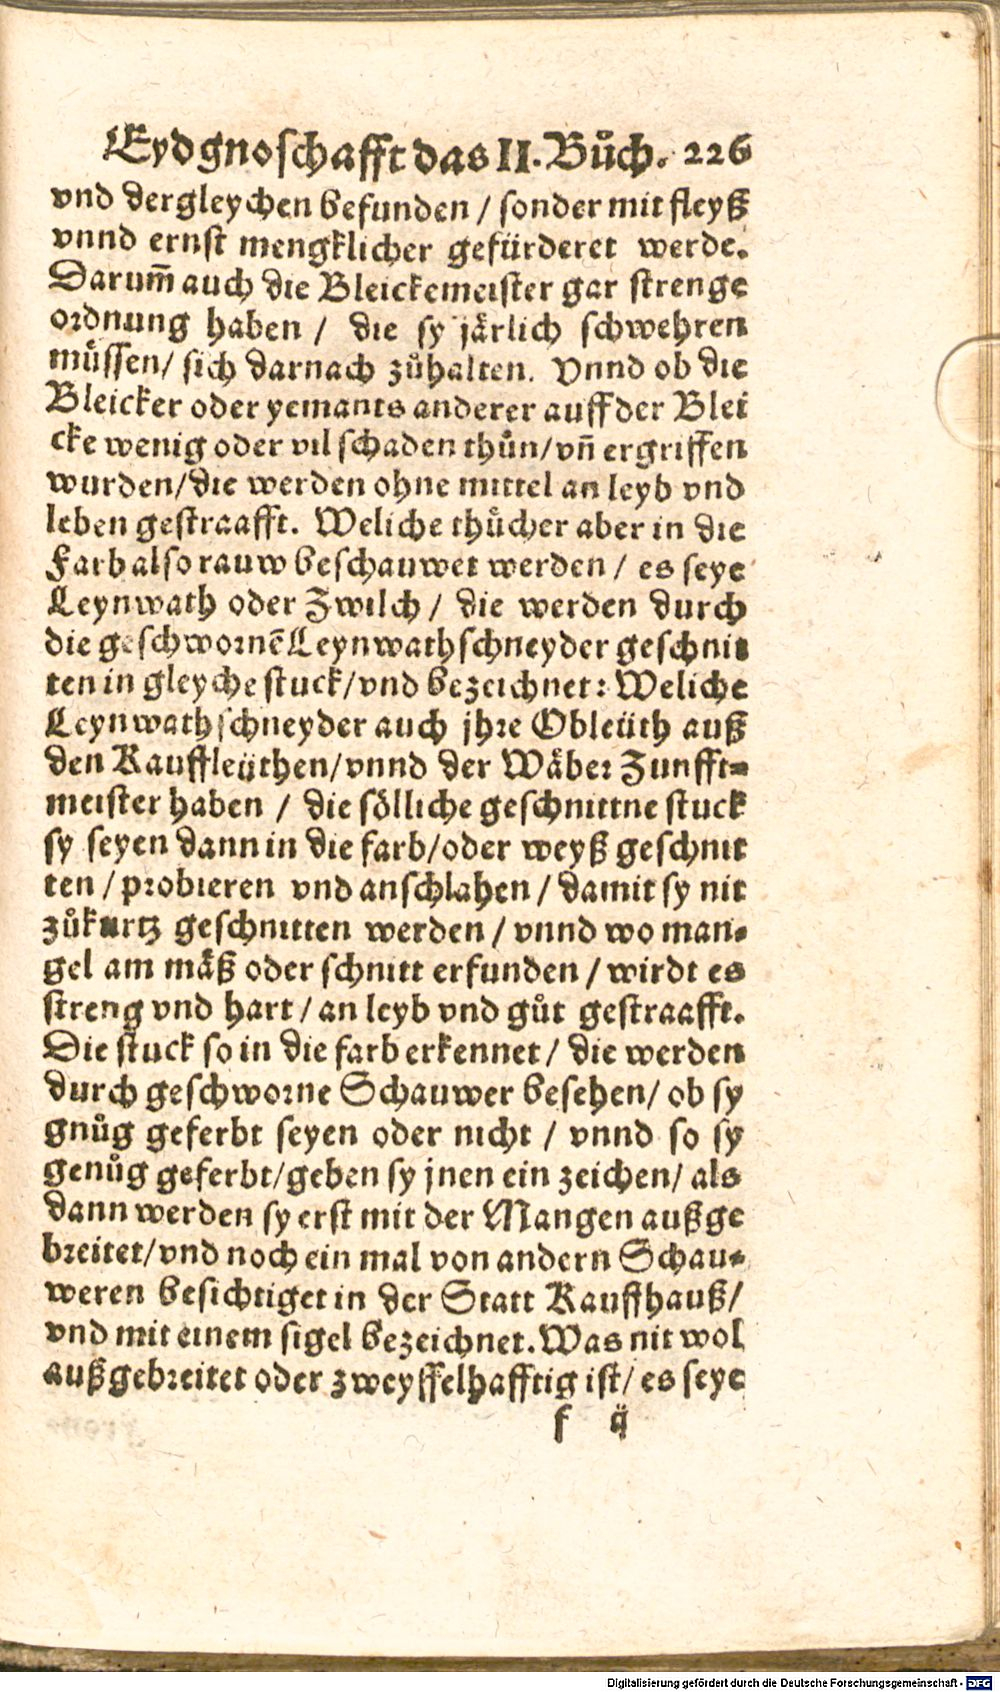 Eydgnoschafft das II. Bůch. 226
vnd dergleychen befunden / sonder mit fleyß
vnnd ernst mengklicher gefürderet werde.
Darum̃ auch die Bleickemeister gar strenge
ordnung haben / die sy järlich schwehren
müssen / sich darnach zůhalten. Vnnd ob die
Bleicker oder yemants anderer auff der Blei
cke wenig oder vil schaden thůn / vñ ergriffen
wurden / die werden ohne mittel an leyb vnd
leben gestraafft. Weliche thůcher aber in die
Farb also rauw beschauwet werden / es seye
Leynwath oder Zwilch / die werden durch
die geschwornẽ Leynwathschneyder geschnit
ten in gleyche stuck / vnd bezeichnet: Weliche
Leynwathschneyder auch jhre Obleüth auß
den Kauffleüthen / vnnd der Wäber Zunfft=
meister haben / die sölliche geschnittne stuck
sy seyen dann in die farb / oder weyß geschnit
ten / probieren vnd anschlahen / damit sy nit
zůkurtz geschnitten werden / vnnd wo man=
gel am mäß oder schnitt erfunden / wirdt es
streng vnd hart / an leyb vnd gůt gestraafft.
Die stuck so in die farb erkennet / die werden
durch geschworne Schauwer besehen / ob sy
gnůg geferbt seyen oder nicht / vnnd so sy
genůg geferbt / geben sy jnen ein zeichen / als
dann werden sy erst mit der Mangen außge
breitet / vnd noch ein mal von andern Schau=
weren besichtiget in der Statt Kauffhauß /
vnd mit einem sigel bezeichnet. Was nit wol
außgebreitet oder zweyffelhafftig ist / es seye
f ij
Digitalisierung gefördert durch die Deutsche Forschungsgemeinschaft - DFG